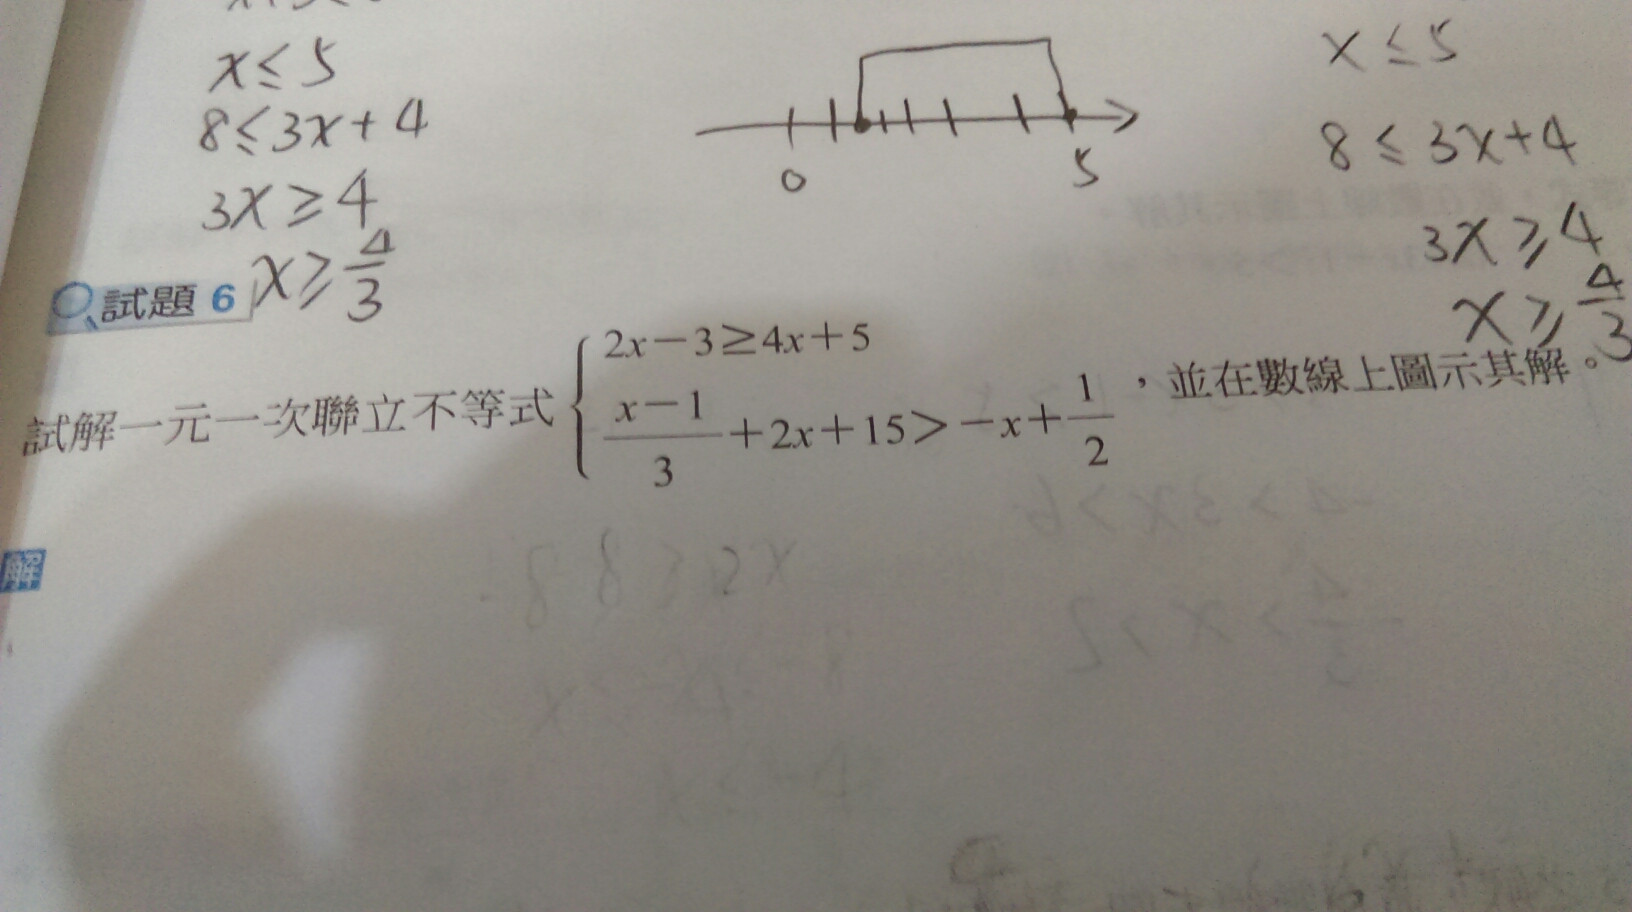 x ≤ 5
8 ≤ 3x + 4
3x ≥ 4
x ≥ 4/3
0 5
x ≤ 5
8 ≤ 3x + 4
3x ≥ 4
x ≥ 4/3
試題 6
試解一元一次聯立不等式 { 2x－3≥4x＋5
(x－1)/3＋2x＋15＞－x＋1/2 ，並在數線上圖示其解。
解